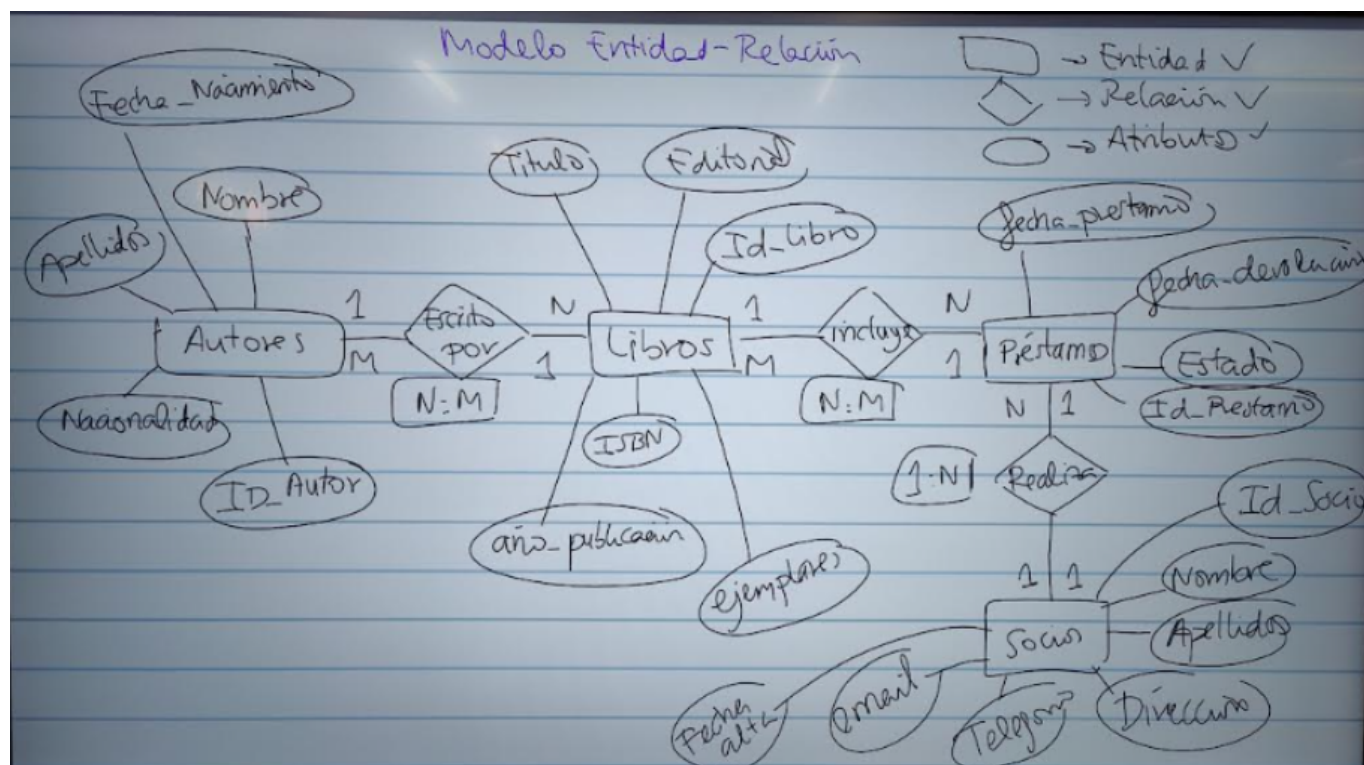 Modelo Entidad-Relación
→ Entidad ✓
→ Relación ✓
→ Atributo ✓
Fecha_Nacimiento
Nombre
Apellidos
Autores
Nacionalidad
ID_Autor
1
M
Escrito
por
N:M
N
1
Titulo
Editorial
Id_Libro
Libros
ISBN
año_publicación
ejemplares
1
M
incluye
N:M
N
1
fecha_prestamo
fecha_devolución
Préstamo
Estado
Id_Prestamo
N 1
1:N
Realiza
1 1
Id_Socio
Nombre
Apellidos
Socios
Dirección
Telefono
email
Fecha
alta